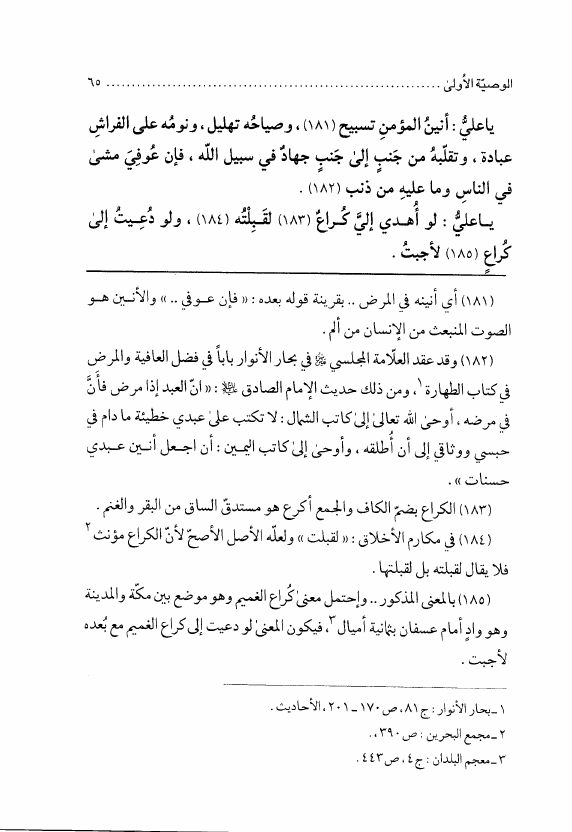 الوصيّة الأولىٰ ................................................................... ٦٥
ياعليُّ : أنينُ المؤمنِ تسبيح (١٨١) ، وصياحُه تهليل ، ونومُه على الفراشِ
عبادة ، وتقلّبهُ من جَنبٍ إلىٰ جَنبٍ جهادٌ في سبيل الله ، فإن عُوفِيَ مشىٰ
في الناسِ وما عليهِ من ذنب (١٨٢) .
يـاعليُّ : لو أُهـدي إليَّ كُـراعٌ (١٨٣) لقَـبِلْتُه (١٨٤) ، ولو دُعـيتُ إلىٰ
كُراعٍ (١٨٥) لأجبتُ .
(١٨١) أي أنينه في المرض .. بقرينة قوله بعده : « فإن عـوفي .. » والأنـين هـو
الصوت المنبعث من الإنسان من ألم .
(١٨٢) وقد عقد العلّامة المجلسي ﷺ في بحار الأنوار باباً في فضل العافية والمرض
في كتاب الطهارة ١، ومن ذلك حديث الإمام الصادق ﷺ : « انّ العبد إذا مرض فأنَّ
في مرضه ، أوحىٰ الله تعالىٰ إلىٰ كاتب الشمال : لا تكتب علىٰ عبدي خطيئة ما دام في
حبسي ووثاقي إلى أن أُطلقه ، وأوحىٰ إلىٰ كاتب اليمـين : أن اجـعل أنـين عـبدي
حسنات » .
(١٨٣) الكراع بضمّ الكاف والجمع أكرع هو مستدقّ الساق من البقر والغنم .
(١٨٤) في مكارم الأخلاق : « لقبلت » ولعلّه الأصل الأصحّ لأنّ الكراع مؤنث ٢
فلا يقال لقبلته بل لقبلتها .
(١٨٥) بالمعنى المذكور .. وإحتمل معنىٰ كُراع الغميم وهو موضع بين مكّة والمدينة
وهو وادٍ أمام عسفان بثمانية أميال ٣، فيكون المعنىٰ لو دعيت إلى كراع الغميم مع بُعده
لأجبت .
١ ـ بحار الأنوار : ج ٨١ ، ص ١٧٠ ـ ٢٠١ ، الأحاديث .
٢ ـ مجمع البحرين : ص ٣٩٠ ، .
٣ ـ معجم البلدان : ج ٤ ، ص ٤٤٣ .